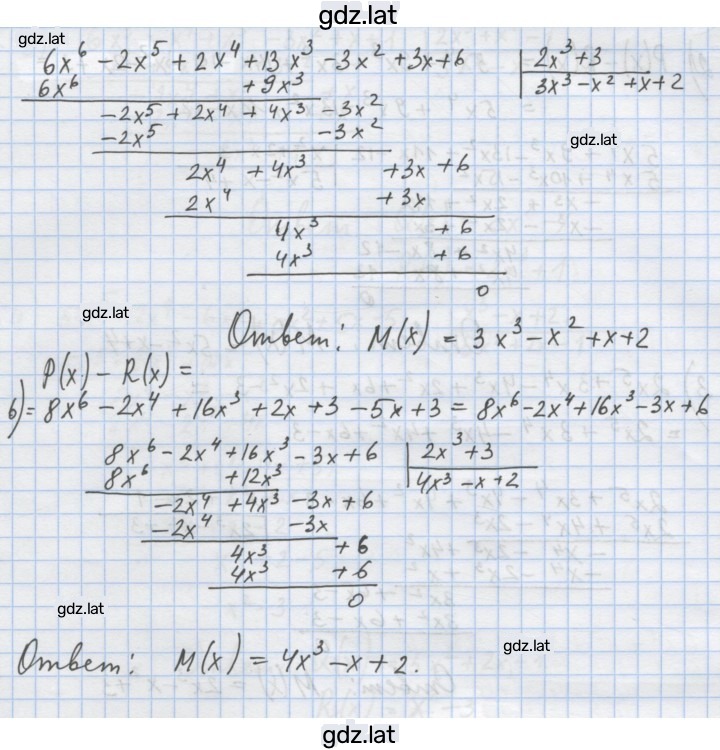 gdz.lat
gdz.lat
6x⁶ − 2x⁵ + 2x⁴ + 13x³ − 3x² + 3x + 6 | 2x³ + 3
6x⁶ + 9x³ | 3x³ − x² + x + 2
−2x⁵ + 2x⁴ + 4x³ − 3x²
−2x⁵ − 3x²
gdz.lat
2x⁴ + 4x³ + 3x + 6
2x⁴ + 3x
4x³ + 6
4x³ + 6
0
gdz.lat
Ответ: M(x) = 3x³ − x² + x + 2
P(x) − R(x) =
б) = 8x⁶ − 2x⁴ + 16x³ + 2x + 3 − 5x + 3 = 8x⁶ − 2x⁴ + 16x³ − 3x + 6
8x⁶ − 2x⁴ + 16x³ − 3x + 6 | 2x³ + 3
8x⁶ + 12x³ | 4x³ − x + 2
−2x⁴ + 4x³ − 3x + 6
−2x⁴ − 3x
4x³ + 6
4x³ + 6
0
gdz.lat
gdz.lat
Ответ: M(x) = 4x³ − x + 2.
gdz.lat